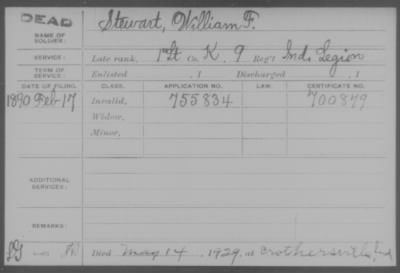 DEAD
NAME OF SOLDIER: Stewart, William F.
SERVICE: Late rank, 1st Lt Co. K, 9 Reg't Ind. Legion
TERM OF SERVICE: Enlisted , 1 Discharged , 1
DATE OF FILING. CLASS. APPLICATION NO. LAW. CERTIFICATE NO.
1890 Feb 17 Invalid, 755834 700879
Widow,
Minor,
ADDITIONAL SERVICES:
REMARKS:
Died May 14, 1929, at Crothersville, Ind